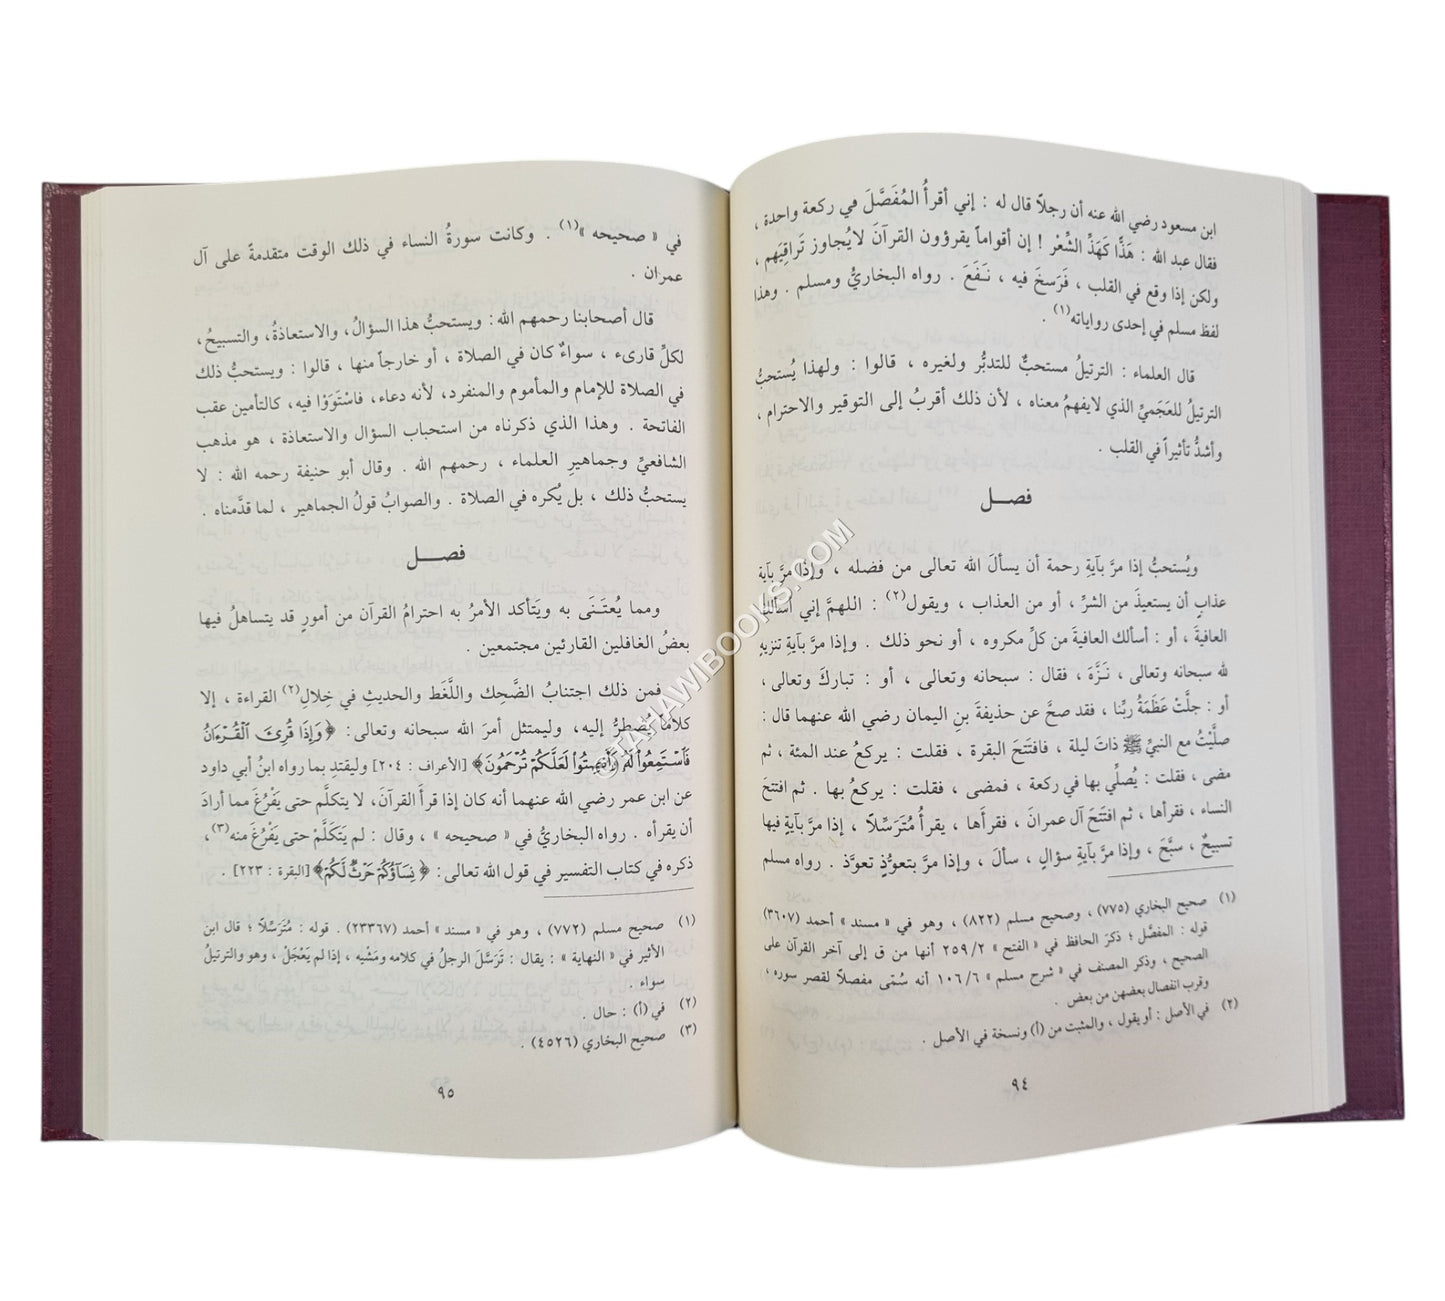 ابن مسعود رضي الله عنه أن رجلاً قال له : إني أقرأُ المُفَصَّلَ في ركعة واحدة ،
فقال عبد الله : هَذًّا كَهَذِّ الشِّعْر ! إن أقواماً يقرؤون القرآنَ لايُجاوز تَراقِيَهم ،
ولكن إذا وقع في القلب ، فَرَسَخَ فيه ، نَـفَعَ . رواه البخاريُّ ومسلم . وهذا
لفظ مسلم في إحدى رواياته(١) .
قال العلماء : الترتيلُ مستحبٌّ للتدبُّر ولغيره ، قالوا : ولهذا يُستحبُّ
الترتيلُ للعَجَميِّ الذي لايفهمُ معناه ، لأن ذلك أقربُ إلى التوقير والاحترام ،
وأشدُّ تأثيراً في القلب .
فصـــل
ويُستحبُّ إذا مرَّ بآيةِ رحمة أن يسألَ الله تعالى من فضله ، وإذا مرَّ بآية
عذابٍ أن يستعيذَ من الشرِّ ، أو من العذاب ، ويقول(٢) : اللهمَّ إني أسألك
العافيةَ ، أو : أسألك العافيةَ من كلِّ مكروه ، أو نحو ذلك . وإذا مرَّ بآيةِ تنزيهٍ
لله سبحانه وتعالى ، نَـزَّهَ ، فقال : سبحانه وتعالى ، أو : تباركَ وتعالى ،
أو : جلَّتْ عَظَمَةُ ربِّنا ، فقد صحَّ عن حذيفةَ بنِ اليمان رضي الله عنهما قال :
صلَّيْتُ مع النبيِّ ﷺ ذاتَ ليلة ، فافتَتَحَ البقرة ، فقلت : يركعُ عند المئة ، ثم
مضى ، فقلت : يُصلِّي بها في ركعة ، فمضى ، فقلت : يركعُ بها . ثم افتتحَ
النساء ، فقرأها ، ثم افتَتَحَ آل عمرانَ ، فقرأها ، يقرأُ مُتَرَسِّلاً ، إذا مرَّ بآيةٍ فيها
تسبيحٌ ، سبَّحَ ، وإذا مرَّ بآيةِ سؤالٍ ، سألَ ، وإذا مرَّ بتعوُّذٍ تعوَّذ . رواه مسلم
(١) صحيح البخاري (٧٧٥) ، وصحيح مسلم (٨٢٢) ، وهو في « مسند » أحمد (٣٦٠٧)
قوله : المفصَّل ؛ ذكرَ الحافظ في « الفتح » ٢٥٩/٢ أنها من ق إلى آخر القرآن على
الصحيح ، وذكر المصنف في « شرح مسلم » ١٠٦/٦ أنه سُمّى مفصلاً لقصر سوره ،
وقرب انفصال بعضهن من بعض .
(٢) في الأصل : أو يقول ، والمثبت من (أ) ونسخة في الأصل .
٩٤
في « صحيحه »(١) . وكانت سورةُ النساء في ذلك الوقت متقدمةً على آل
عمران .
قال أصحابنا رحمهم الله : ويستحبُّ هذا السؤالُ ، والاستعاذةُ ، والتسبيحُ ،
لكلِّ قارىء ، سواءٌ كان في الصلاة ، أو خارجاً منها ، قالوا : ويستحبُّ ذلك
في الصلاة للإمام والمأموم والمنفرد ، لأنه دعاء ، فاسْتَوَوْا فيه ، كالتأمين عقب
الفاتحة . وهذا الذي ذكرناه من استحباب السؤال والاستعاذة ، هو مذهب
الشافعيِّ وجماهيرِ العلماء ، رحمهم الله . وقال أبو حنيفة رحمه الله : لا
يستحبُّ ذلك ، بل يُكره في الصلاة . والصوابُ قولُ الجماهير ، لما قدَّمناه .
فصـــل
ومما يُعتَـنَى به ويَتأكد الأمرُ به احترامُ القرآن من أمورٍ قد يتساهلُ فيها
بعضُ الغافلين القارئين مجتمعين .
فمن ذلك اجتنابُ الضَّحِك واللَّغَط والحديثِ في خِلالِ(٢) القراءة ، إلا
كلاماً يُضطرُّ إليه ، وليمتثل أمرَ الله سبحانه وتعالى : ﴿وَإِذَا قُرِئَ ٱلْقُرْءَانُ
فَٱسْتَمِعُوا۟ لَهُۥ وَأَنصِتُوا۟ لَعَلَّكُمْ تُرْحَمُونَ﴾ [الأعراف : ٢٠٤] وليقتدِ بما رواه ابنُ أبي داود
عن ابن عمر رضي الله عنهما أنه كان إذا قرأَ القرآنَ ، لا يتكلَّم حتى يَفْرُغَ مما أرادَ
أن يقرأه . رواه البخاريُّ في « صحيحه » ، وقال : لم يَتكَلَّمْ حتى يَفْرُغَ منه(٣) ،
ذكره في كتاب التفسير في قول الله تعالى : ﴿ نِسَآؤُكُمْ حَرْثٌ لَّكُمْ﴾ [البقرة : ٢٢٣] .
(١) صحيح مسلم (٧٧٢) ، وهو في « مسند » أحمد (٢٣٣٦٧) . قوله : مُتَرَسِّلاً ؛ قال ابن
الأثير في « النهاية » : يقال : تَرَسَّلَ الرجلُ في كلامه ومَشْيه ، إذا لم يَعْجَلْ ، وهو والترتيلُ
سواء .
(٢) في (أ) : حال .
(٣) صحيح البخاري (٤٥٢٦) .
٩٥
©TAHAWIBOOKS.COM